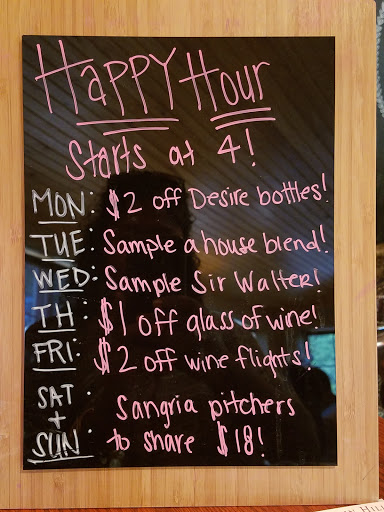 Happy Hour
Starts at 4!
MON: $2 off Desire bottles!
TUE: Sample a house blend!
WED: Sample Sir Walter!
TH: $1 off glass of wine!
FRI: $2 off wine flights!
SAT : Sangria pitchers
+
SUN: to share $18!